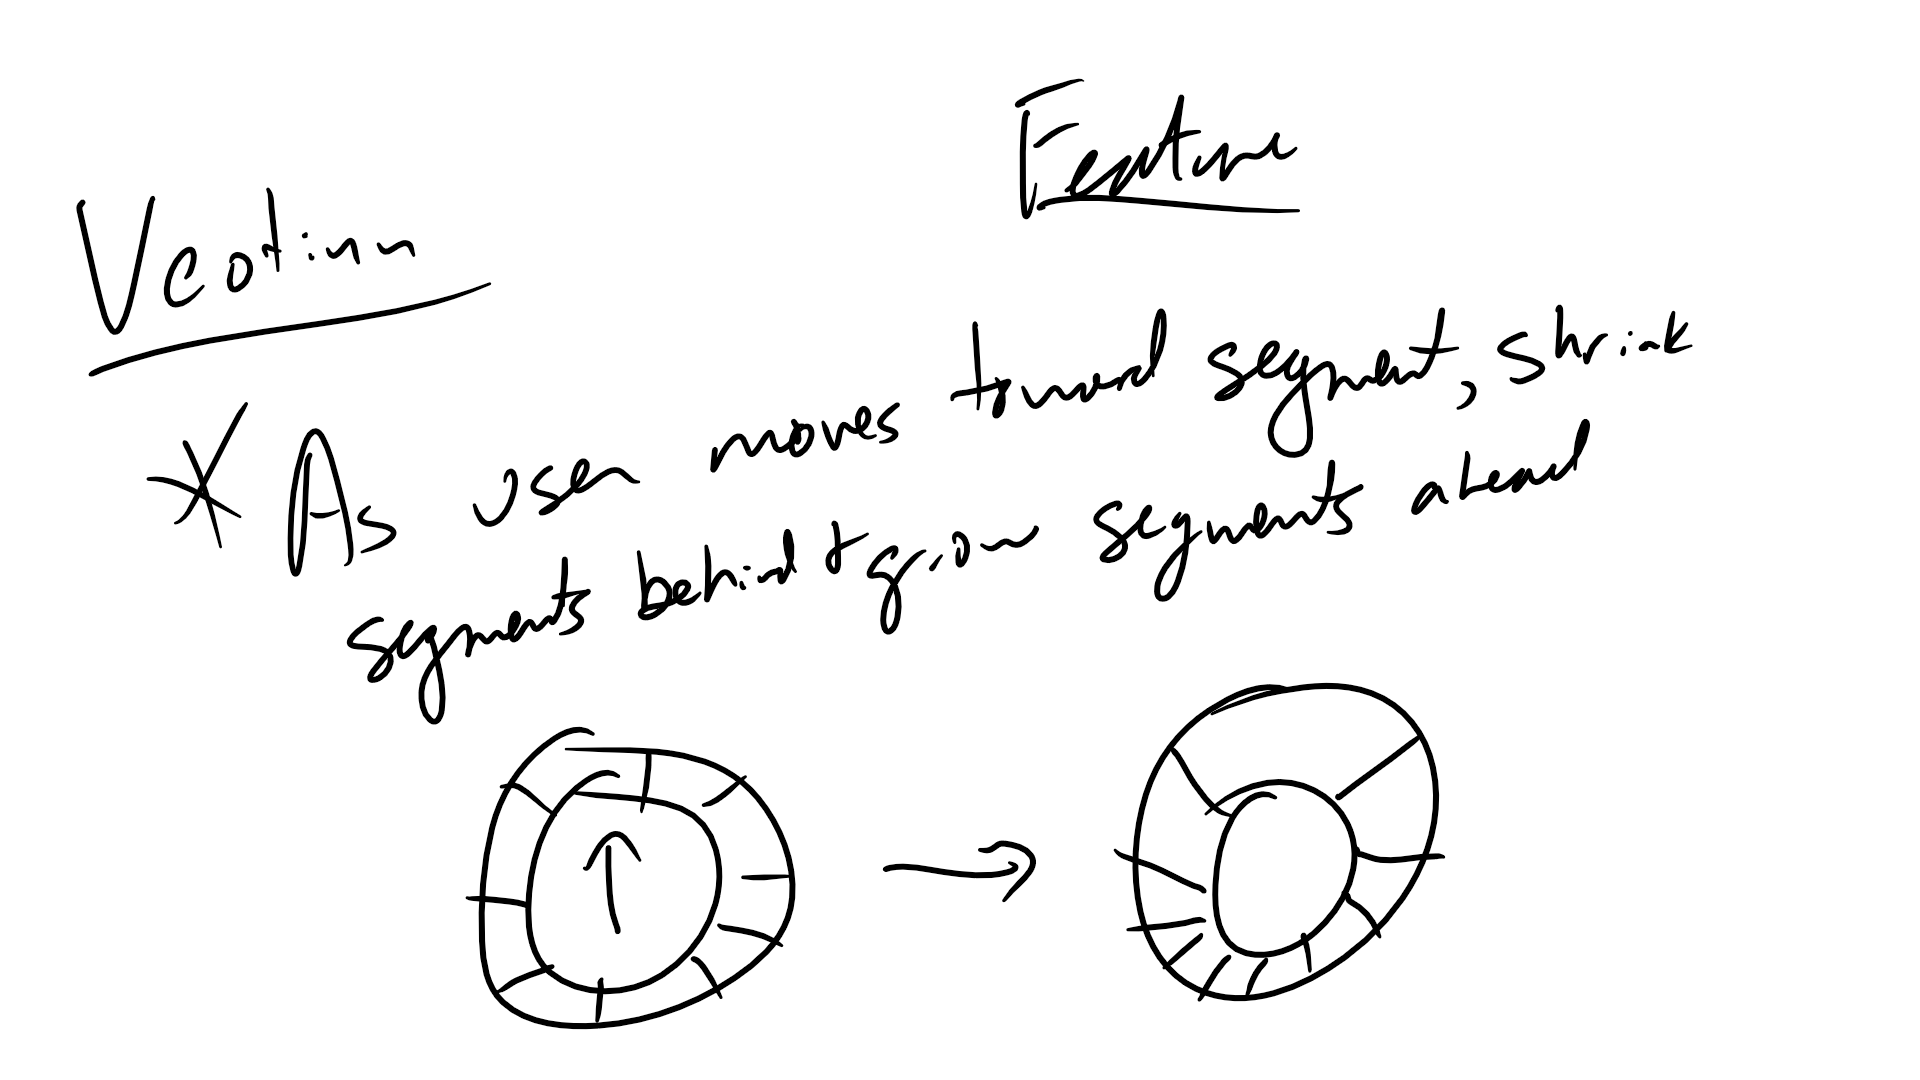 Feature
Vcotinn
* As user moves toward segment, shrink
segments behind + grow segments ahead